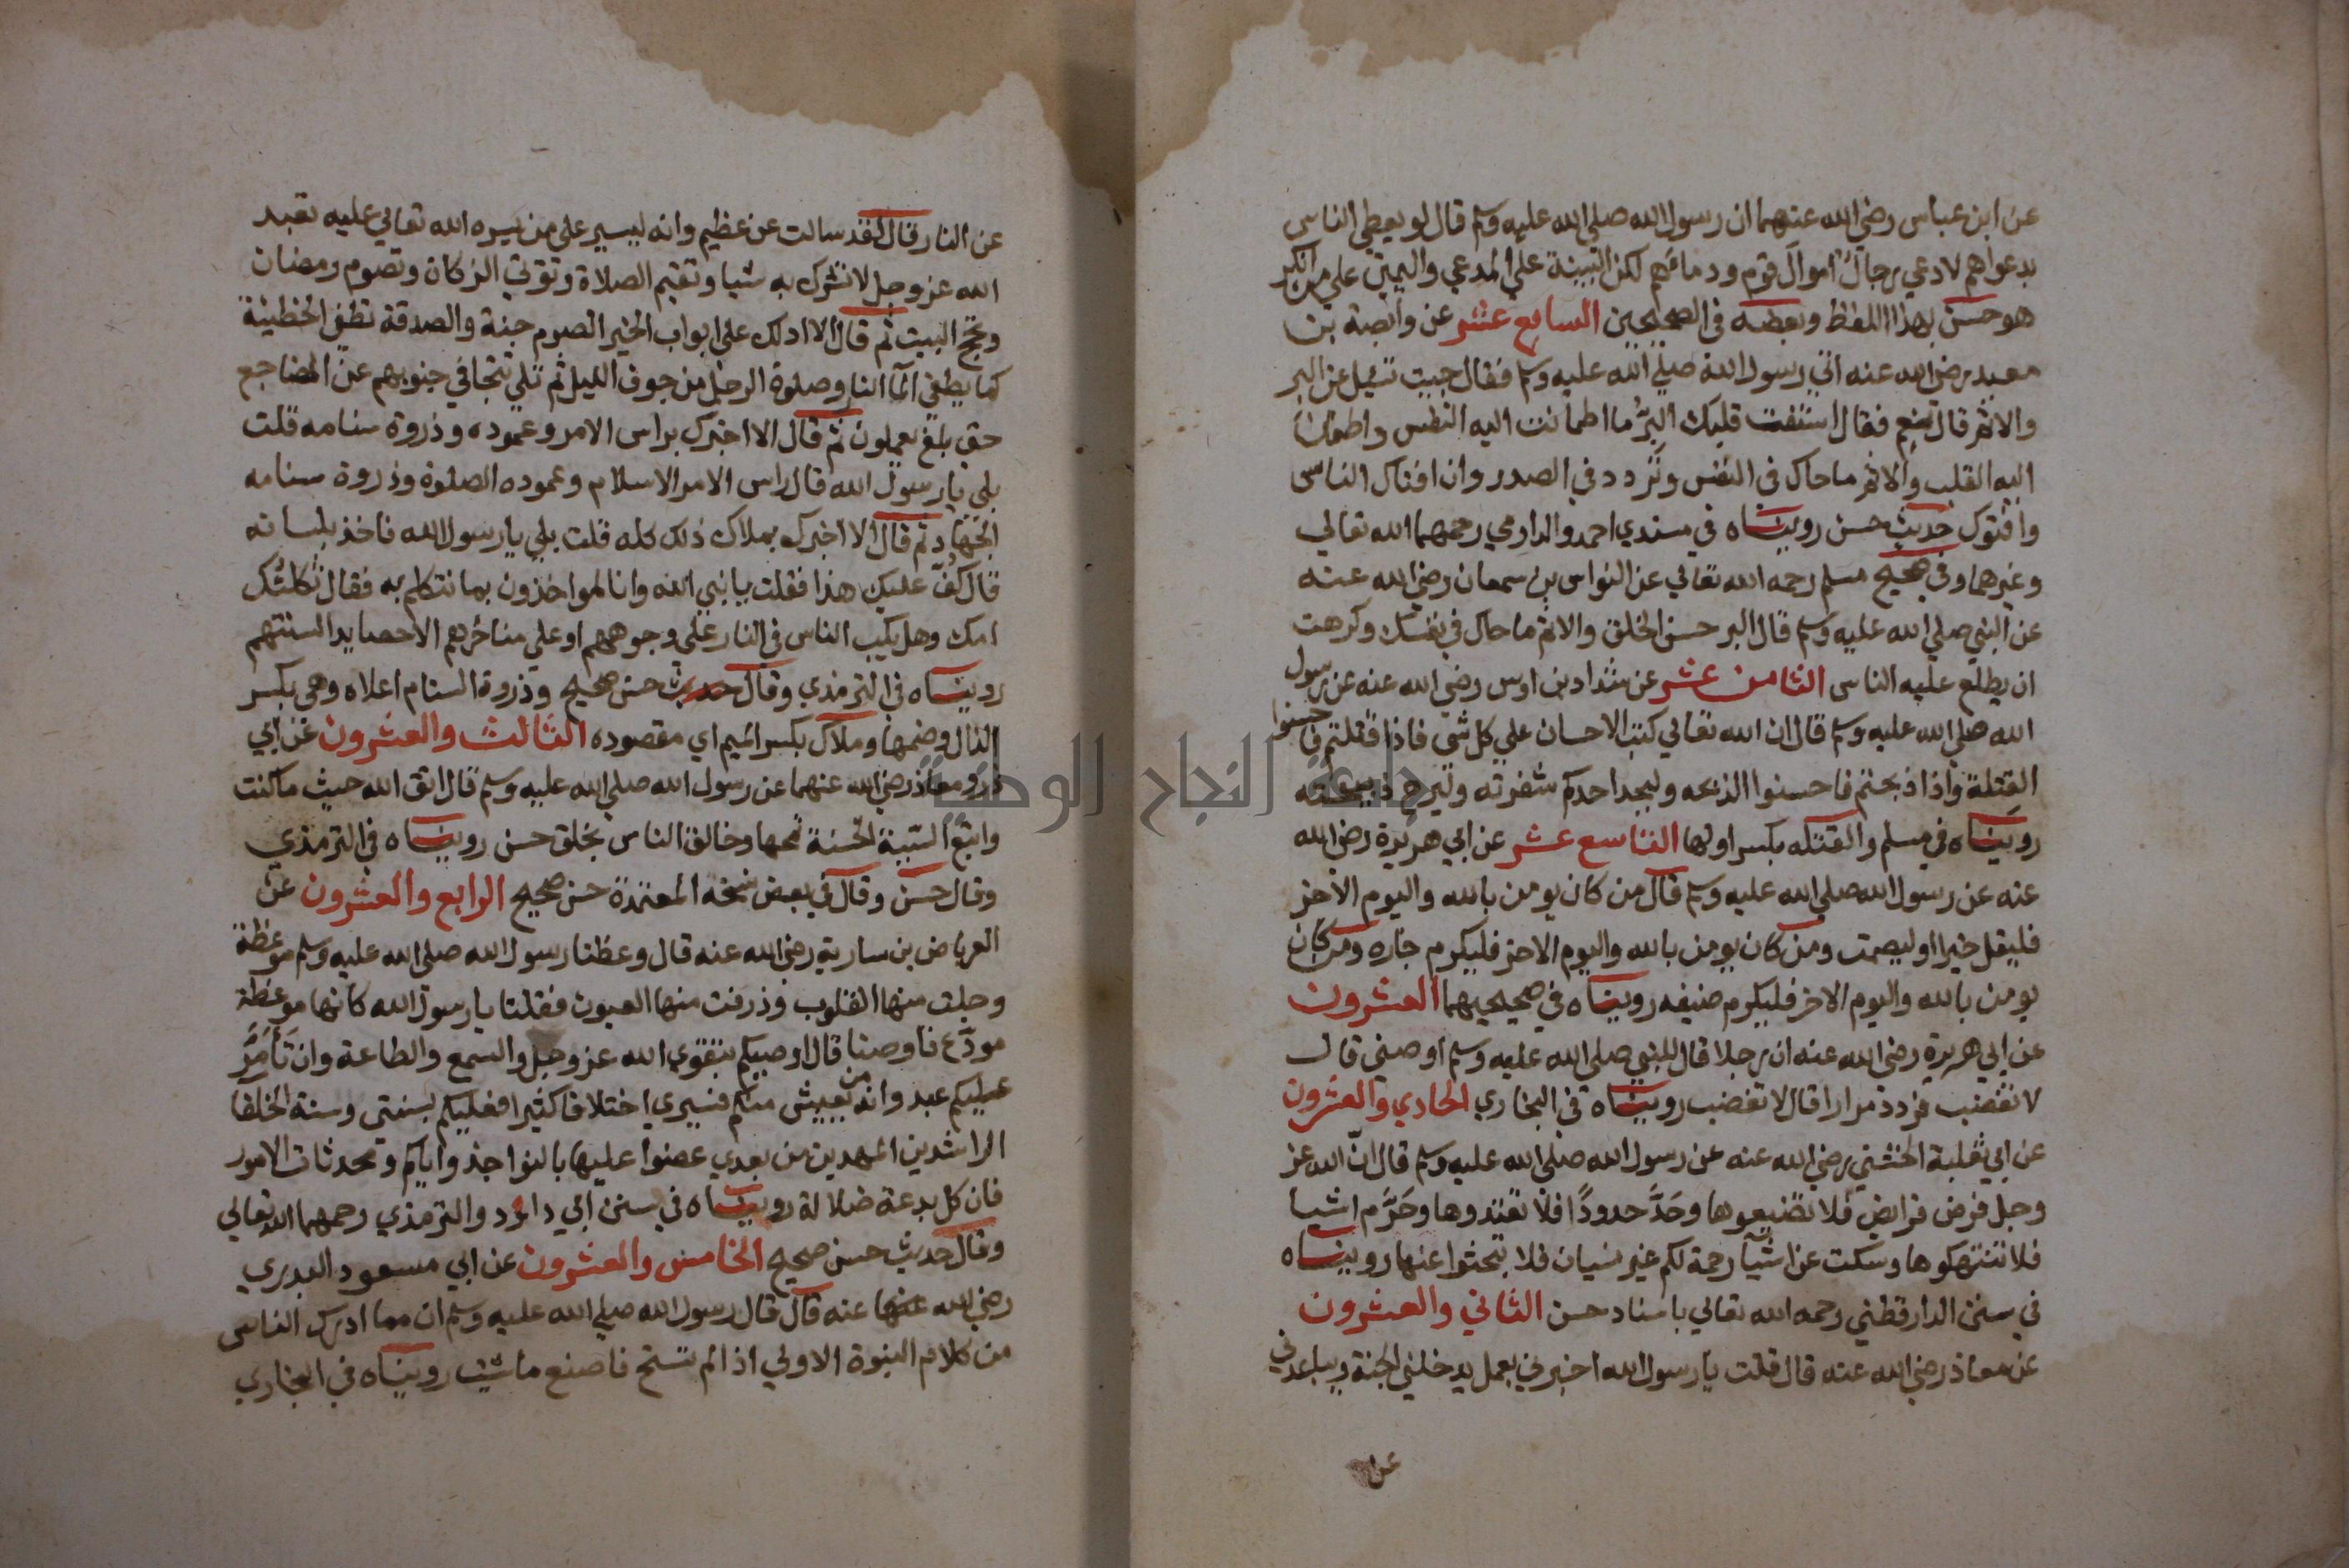 عن ابن عباس رضي الله عنهما ان رسول الله صلي الله عليه وسلم قال لو يعطي الناس
بدعواهم لادعي رجال اموال قوم ودمائهم لكن البينة علي المدعي واليمين علي من انكر
هو حسن بهذا اللفظ وبعضه في الصحيحين السابع عشر عن وابصة بن
معبد رضي الله عنه اتي رسول الله صلي الله عليه وسلم فقال جيت تسئل عن البر
والاثم قال نعم فقال استفت قلبك البر ما اطمانت اليه النفس واطمان
اليه القلب والاثم ما حاك في النفس وتردد في الصدر وان افتاك الناس
وافتوك حديث حسن رويناه في مسندي احمد والدارمي رحمهما الله تعالي
وغيرهما وفي صحيح مسلم رحمه الله تعالي عن النواس بن سمعان رضي الله عنه
عن النبي صلي الله عليه وسلم قال البر حسن الخلق والاثم ما حاك في نفسك وكرهت
ان يطلع عليه الناس الثامن عشر عن شداد بن اوس رضي الله عنه عن رسول
الله صلي الله عليه وسلم قال ان الله تعالي كتب الاحسان علي كل شي فاذا قتلتم فاحسنوا
القتلة واذا ذبحتم فاحسنوا الذبحه وليحد احدكم شفرته وليرح ذبيحته
رويناه في مسلم والقتله بكسر اولها التاسع عشر عن ابي هريرة رضي الله
عنه عن رسول الله صلي الله عليه وسلم قال من كان يومن بالله واليوم الاخر
فليقل خيرا او ليصمت ومن كان يومن بالله واليوم الاخر فليكرم جاره ومن كان
يومن بالله واليوم الاخر فليكرم ضيفه رويناه في صحيحيهما العشرون
عن ابي هريرة رضي الله عنه ان رجلا قال للنبي صلي الله عليه وسلم اوصني قال
لا تغضب فردد مرارا قال لا تغضب رويناه في البخاري الحادي والعشرون
عن ابي ثعلبة الخشني رضي الله عنه عن رسول الله صلي الله عليه وسلم قال ان الله عز
وجل فرض فرايض فلا تضيعوها وحَدَّ حدودًا فلا تعتدوها وحَرَّم اشيا
فلا تنتهكوها وسكت عن اشيآ رحمة لكم غير نسيان فلا تبحثوا عنها رويناه
في سنن الدارقطني رحمه الله تعالي باسناد حسن الثاني والعشرون
عن معاذ رضي الله عنه قال قلت يا رسول الله اخبرني بعمل يدخلني الجنة ويباعدني
عن
عن النار قال لقد سالت عن عظيم وانه ليسير علي من يسره الله تعالي عليه تعبد
الله عز وجل لا تشرك به شيا وتقيم الصلاة وتوتي الزكان وتصوم رمضان
وتحج البيت ثم قال الا ادلك علي ابواب الخير الصوم جنة والصدقة تطفي الخطيئة
كما يطفي المآ النار وصلوة الرجل من جوف الليل ثم تلي تتجافي جنوبهم عن المضاجع
حتي بلغ يعملون ثم قال الا اخبرك براس الامر وعموده وذروة سنامه قلت
بلي يا رسول الله قال راس الامر الاسلام وعموده الصلوة وذروة سنامه
الجهاد ثم قال الا اخبرك بملاك ذلك كله قلت بلي يا رسول الله فاخذ بلسانه
قال كُفّ عليك هذا فقلت يا نبي الله وانا لمواخذون بما نتكلم به فقال ثكلتك
امك وهل يكب الناس في النار علي وجوههم او علي مناخرهم الا حصايد السنتهم
رويناه في الترمذي وقال حديث حسن صحيح وذروة السنام اعلاه وهي بكسر
الذال وضمها وملاك بكسر الميم اي مقصوده الثالث والعشرون عن ابي
ذر ومعاذ رضي الله عنهما عن رسول الله صلي الله عليه وسلم قال اتق الله حيث ما كنت
واتبع السية الحسنة تمحها وخالق الناس بخلق حسن رويناه في الترمذي
وقال حسن وقال في بعض نسخه المعتمدة حسن صحيح الرابع والعشرون عن
العرباض بن سارية رضي الله عنه قال وعظنا رسول الله صلي الله عليه وسلم موعظة
وجلت منها القلوب وذرفت منها العيون فقلنا يا رسول الله كانها موعظة
مودّع فاوصنا قال اوصيكم بتقوي الله عز وجل والسمع والطاعة وان تَأَمَّرَ
عليكم عبد وانه من يعيش منكم فسيري اختلافا كثيرا فعليكم بسنتي وسنة الخلفا
الراشدين المهديين من بعدي عضوا عليها بالنواجذ واياكم ومحدثات الامور
فان كل بدعة ضلالة رويناه في سنن ابي داود والترمذي رحمهما الله تعالي
وقال حديث حسن صحيح الخامس والعشرون عن ابي مسعود البدري
رضي الله عنهما عنه قال قال رسول الله صلي الله عليه وسلم ان مما ادرك الناس
من كلام النبوة الاولي اذا لم تستح فاصنع ما شيت رويناه في البخاري
جامعة النجاح الوطنية